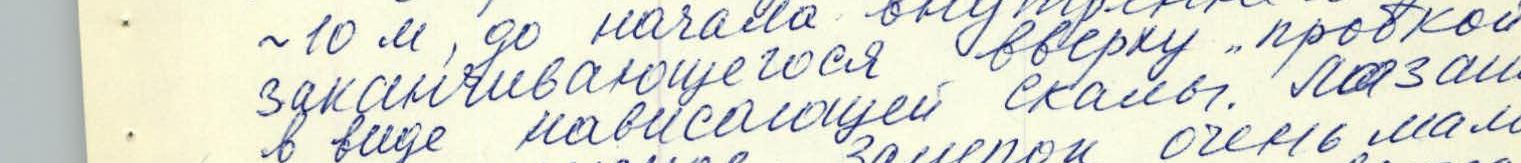 ~10 м, до начала
заканчивающегося вверху „пробкой
в виде нависающей скалы. Лазан
зацепок очень мал